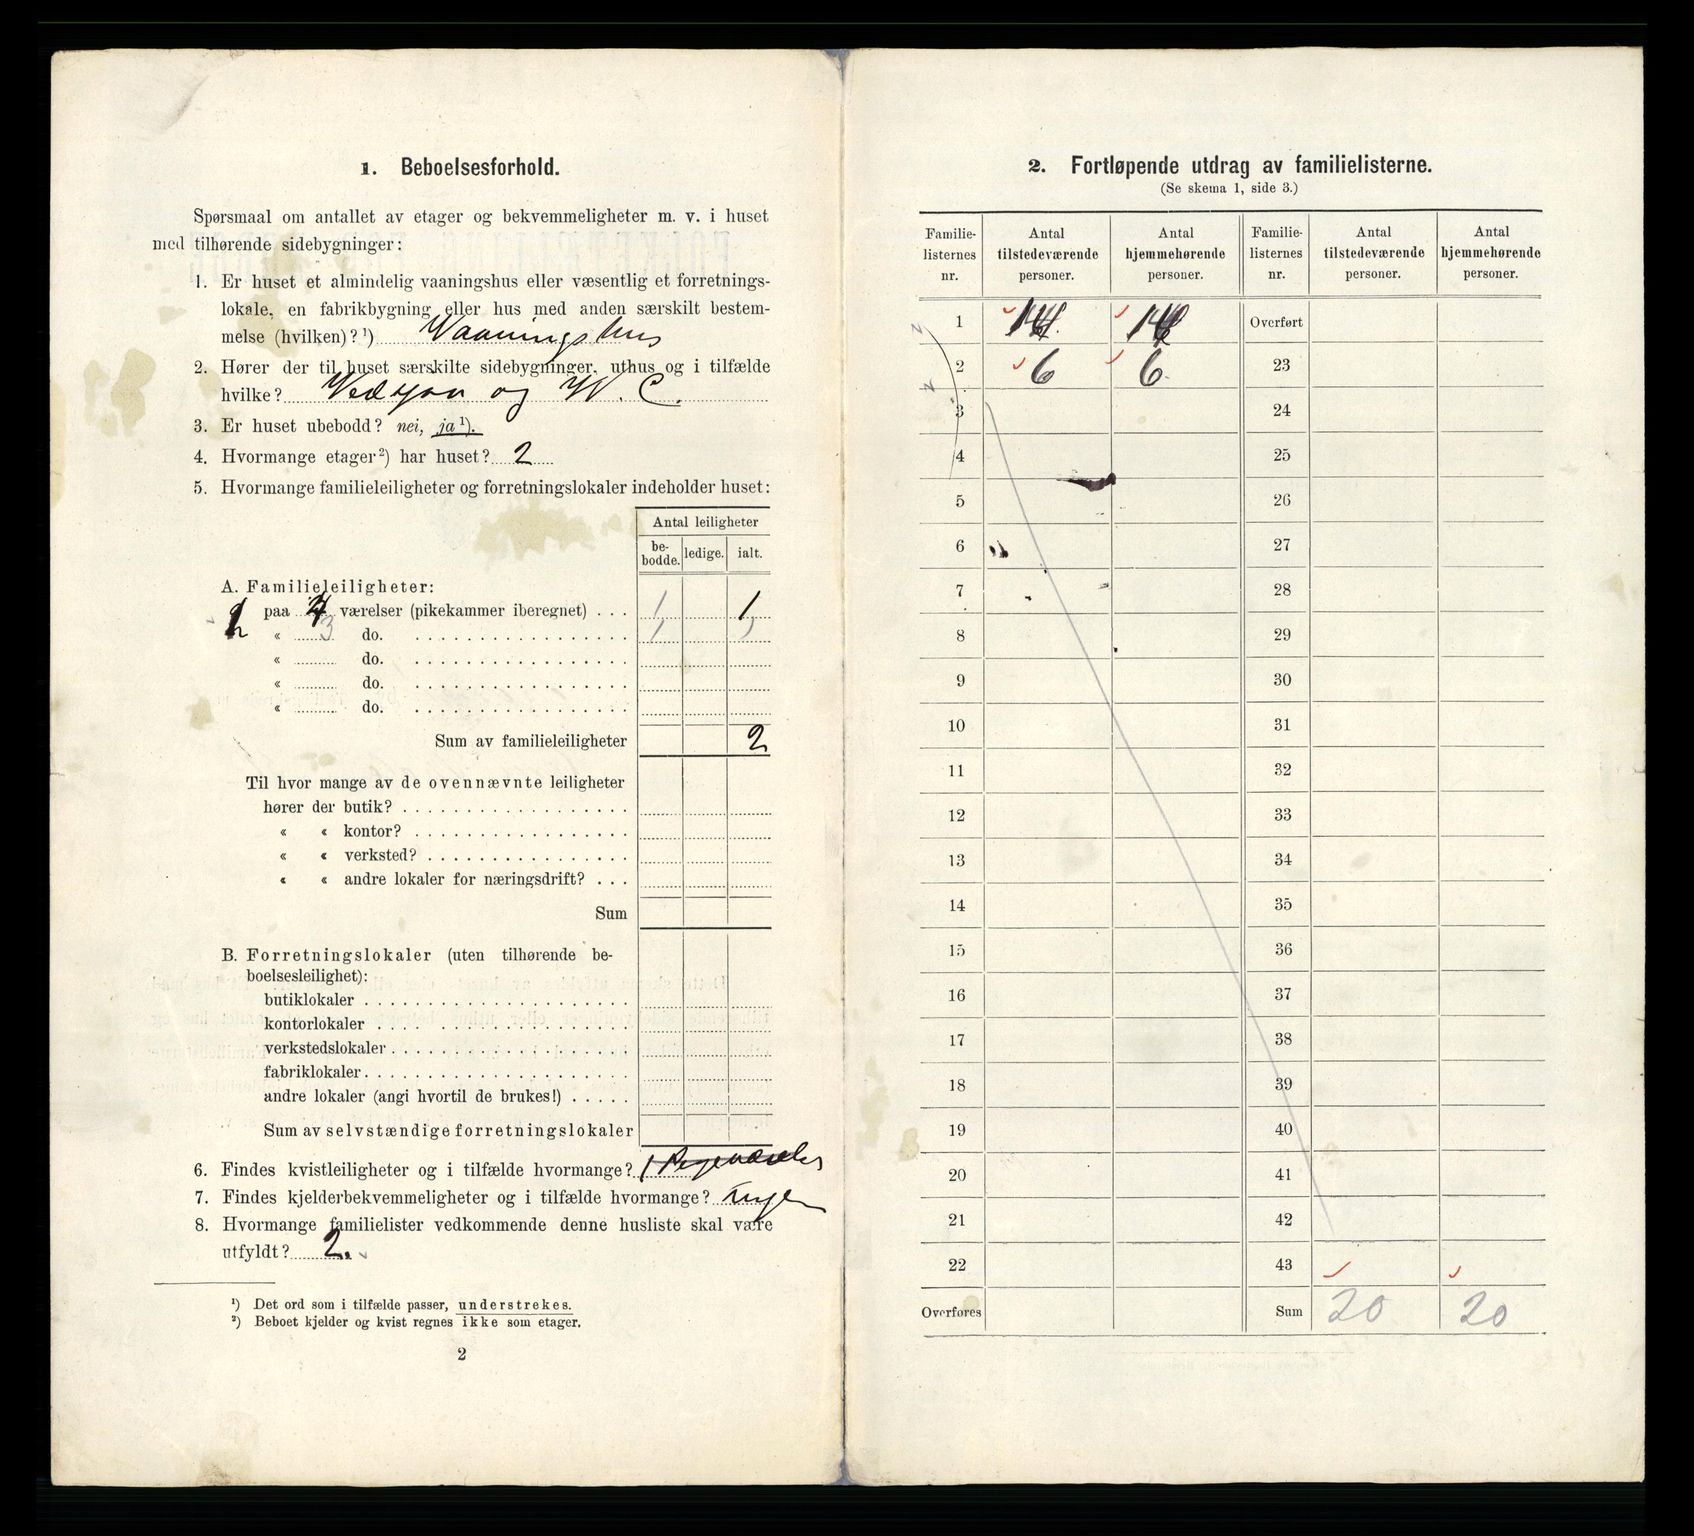 1. Beboelsesforhold.
Spørsmaal om antallet av etager og bekvemmeligheter m. v. i huset
med tilhørende sidebygninger:
1. Er huset et almindelig vaaningshus eller væsentlig et forretnings-
lokale, en fabrikbygning eller hus med anden særskilt bestem-
melse (hvilken)? ¹) Vaaningshus
2. Hører der til huset særskilte sidebygninger, uthus og i tilfælde
hvilke? og W. C.
3. Er huset ubebodd? nei, ja ¹).
4. Hvormange etager ²) har huset? 2
5. Hvormange familieleiligheter og forretningslokaler indeholder huset:
Antal leiligheter
be-
bodde. ledige. ialt.
A. Familieleiligheter:
paa værelser (pikekammer iberegnet) . . . 1 1
« 3 do. . . . . . . . . . . . . . . . . . 1 1
« do. . . . . . . . . . . . . . . . . .
« do. . . . . . . . . . . . . . . . . .
« do. . . . . . . . . . . . . . . . . .
Sum av familieleiligheter 2
Til hvor mange av de ovennævnte leiligheter
hører der butik? . . . . . . . . . . . . . . . . . .
« « kontor? . . . . . . . . . . . . . . . . .
« « verksted? . . . . . . . . . . . . . . . .
« « andre lokaler for næringsdrift? . . .
Sum
B. Forretningslokaler (uten tilhørende be-
boelsesleilighet):
butiklokaler . . . . . . . . . . . . . . . . . . . . .
kontorlokaler . . . . . . . . . . . . . . . . . . .
verkstedslokaler . . . . . . . . . . . . . . . . . .
fabriklokaler . . . . . . . . . . . . . . . . . . . .
andre lokaler (angi hvortil de brukes!) . . . . .
Sum av selvstændige forretningslokaler
6. Findes kvistleiligheter og i tilfælde hvormange? 1
7. Findes kjelderbekvemmeligheter og i tilfælde hvormange? ingen
8. Hvormange familielister vedkommende denne husliste skal være
utfyldt? 2.
¹) Det ord som i tilfælde passer, understrekes.
²) Beboet kjelder og kvist regnes ikke som etager.
2
2. Fortløpende utdrag av familielisterne.
(Se skema 1, side 3.)
Familie-
listernes
nr. Antal
tilstedeværende
personer. Antal
hjemmehørende
personer. Familie-
listernes
nr. Antal
tilstedeværende
personer. Antal
hjemmehørende
personer.
1 14 14 Overført
2 6 6 23
3 24
4 25
5 26
6 27
7 28
8 29
9 30
10 31
11 32
12 33
13 34
14 35
15 36
16 37
17 38
18 39
19 40
20 41
21 42
22 43
Overføres Sum 20 20